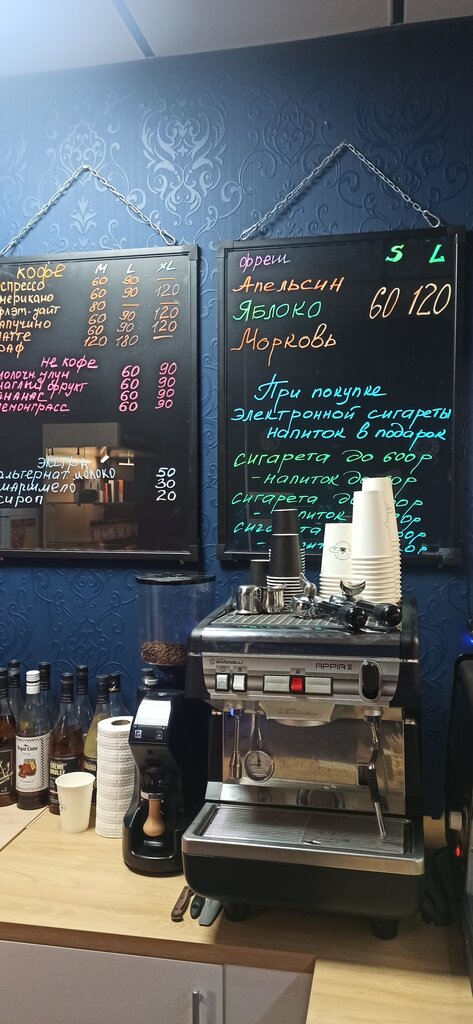 кофе M L XL
спрессо 60 90
мерикано 60 90 120
флэт-уайт 80 —
апучино 60 90 120
атте 60 90 120
раф 120 180 —
Не кофе
молочн. улун 60 90
наглый фрукт 60 90
ананас 60 90
лемонграсс 60 90
экстра
альтернат. молоко 50
маршмело 30
сироп 20
фреш S L
Апельсин
Яблоко 60 120
Морковь
При покупке
электронной сигареты
напиток в подарок
сигарета до 600р
- напиток до
сигарета до
- напиток
SIMONELLI
APPIA II
Royal Cane